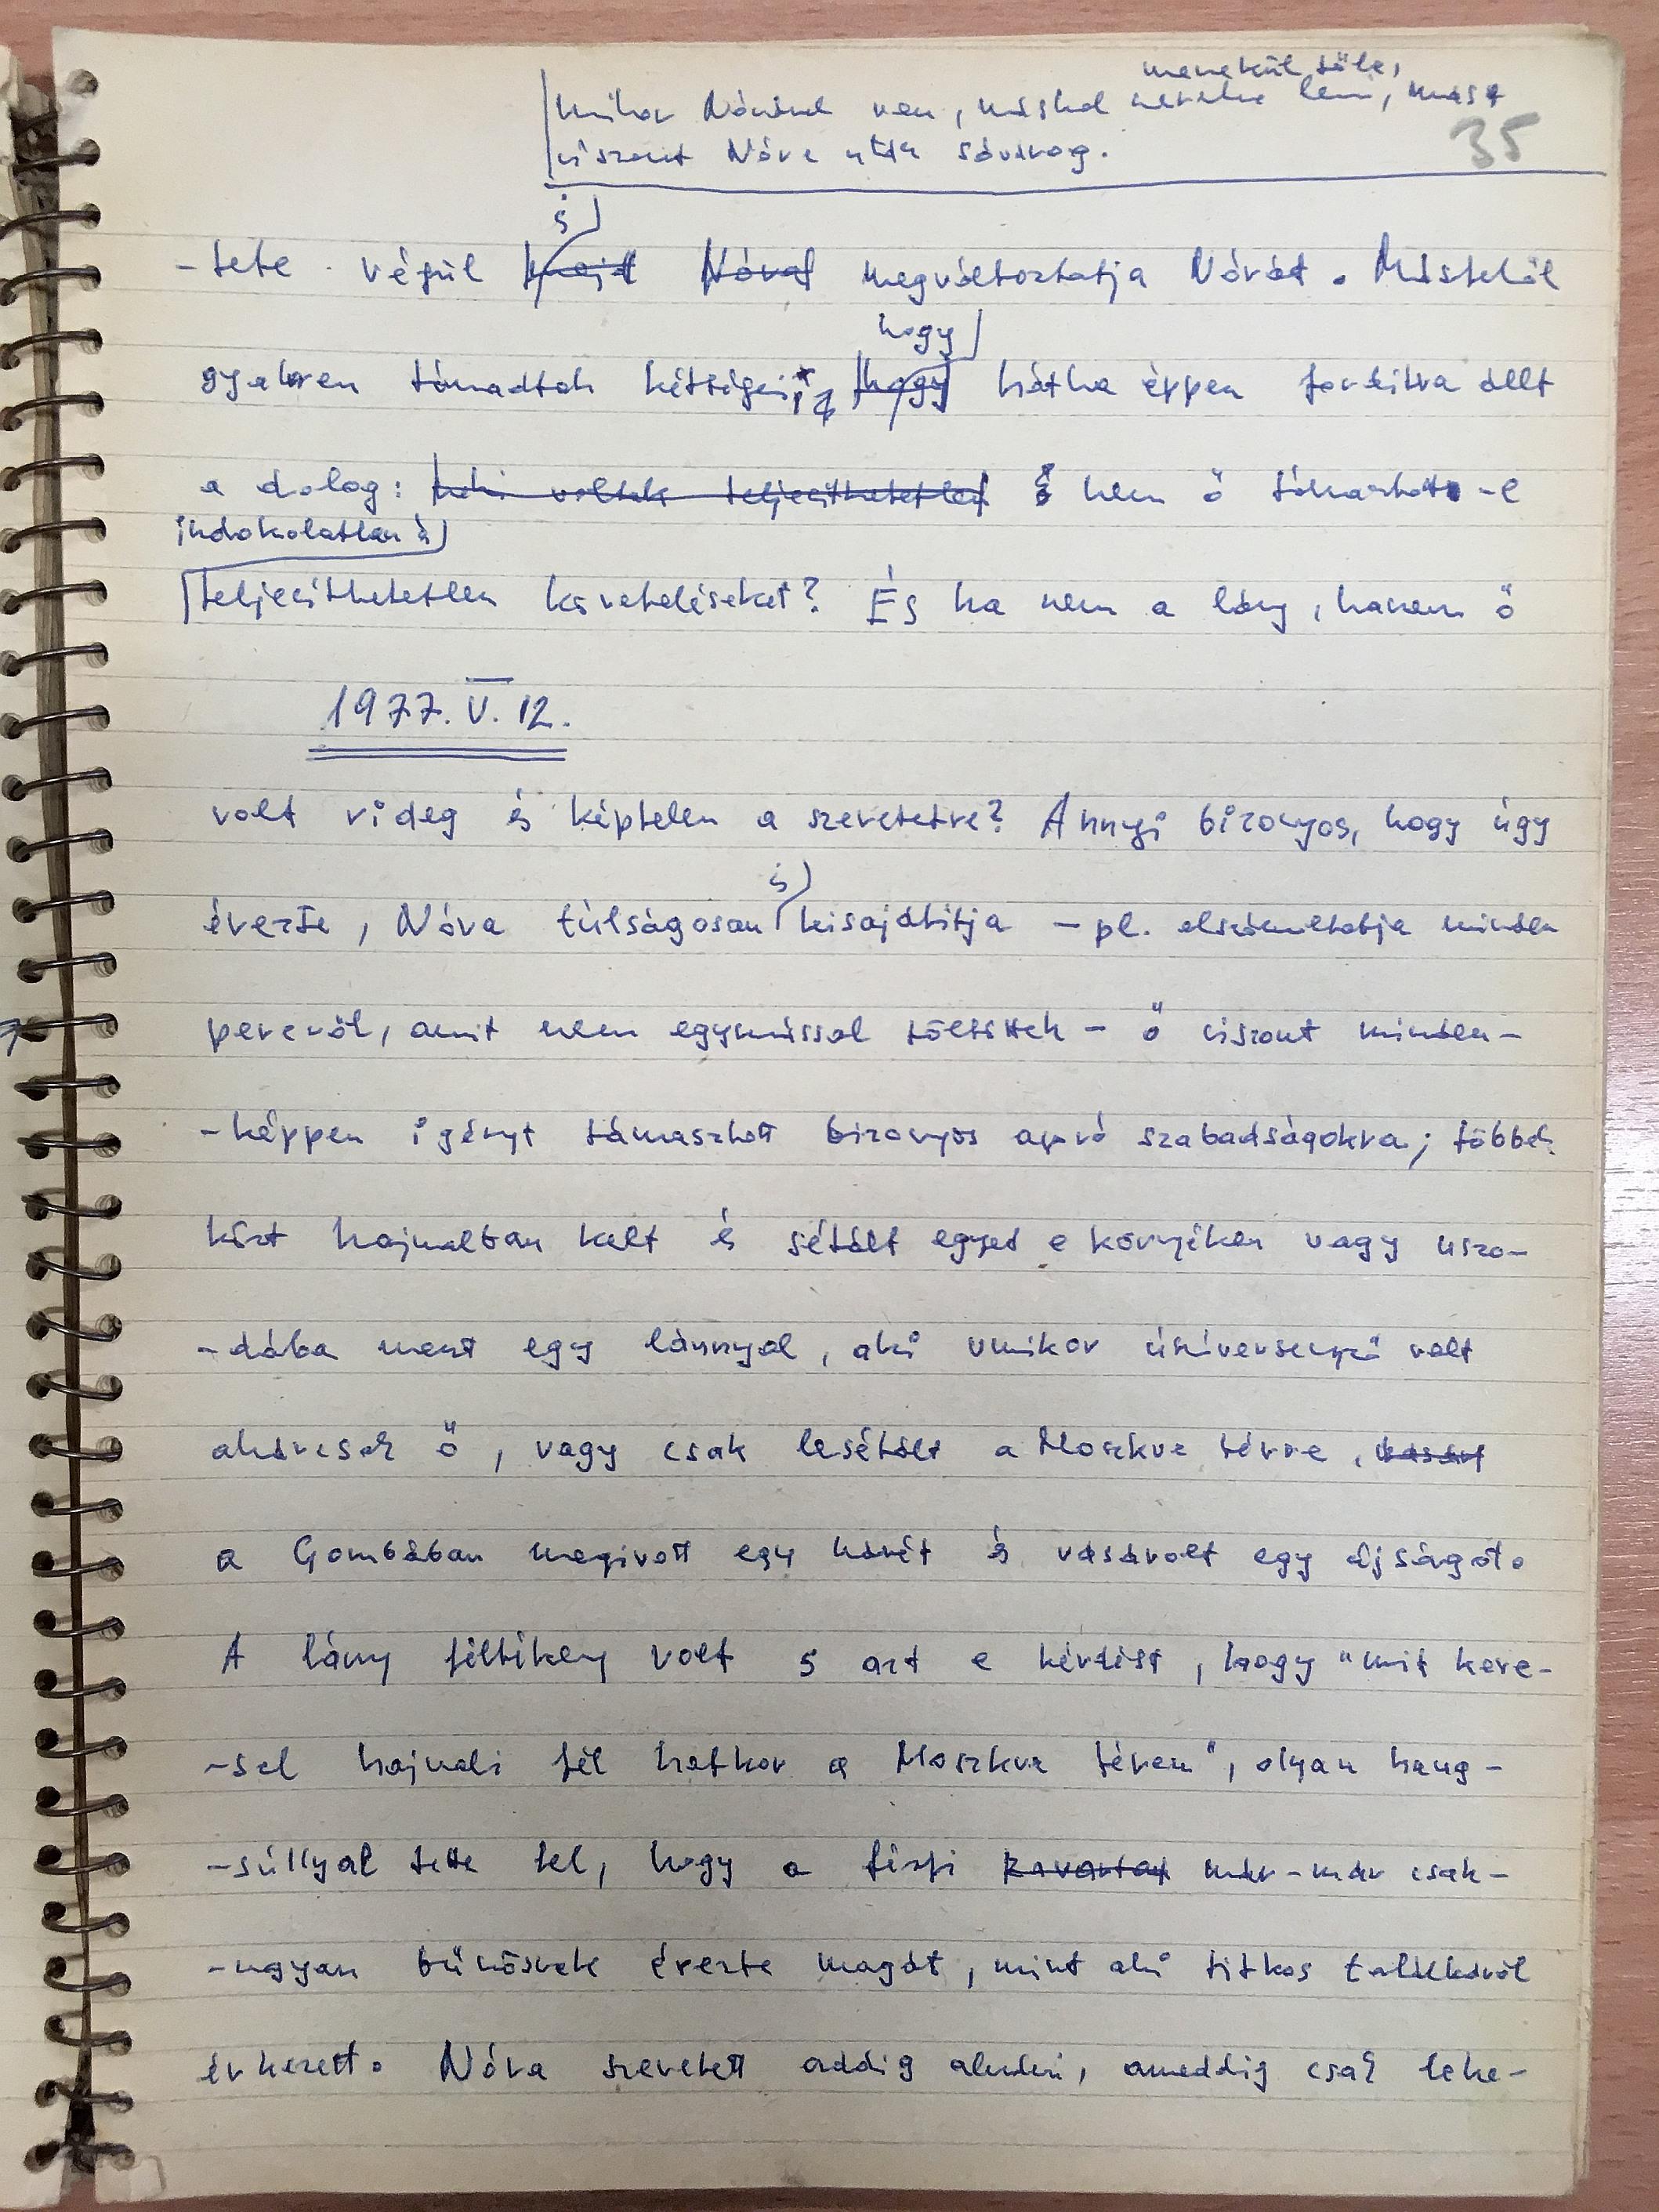 menekül tőle,
mikor Nóránál van, máshol szeretne lenni, most
viszont Nóra után sóvárog.
35
és
-tete végül majd Nórát megváltoztatja Nórát. Máskülön
hogy
gyakran támadtak kétségei; hogy hátha éppen fordítva állt
a dolog: neki voltak teljesíthetetlen s nem ő támasztott-e
indokolatlan és
teljesíthetetlen követeléseket? És ha nem a lány, hanem ő
1977. V. 12.
volt rideg és képtelen a szeretetre? Annyi bizonyos, hogy úgy
és
érezte, Nóra túlságosan kisajátítja – pl. elszámoltatja minden
percről, amit nem egymással töltöttek – ő viszont minden-
-képpen igényt támasztott bizonyos apró szabadságokra; többek
közt hajnalban kelt és sétált egyet a környéken vagy uszo-
-dába ment egy lánnyal, aki valamikor úszóversenyző volt
akárcsak ő, vagy csak lesétált a Moszkva térre, vásárolt
a Gombában megivott egy kávét és vásárolt egy újságot.
A lány féltékeny volt s azt a kérdést, hogy "mit kere-
-sel hajnali fél hatkor a Moszkva téren", olyan hang-
-súllyal tette fel, hogy a férfi zavartan már-már csak-
-ugyan bűnösnek érezte magát, mint aki titkos találkáról
érkezett. Nóra szeretett addig aludni, ameddig csak lehe-